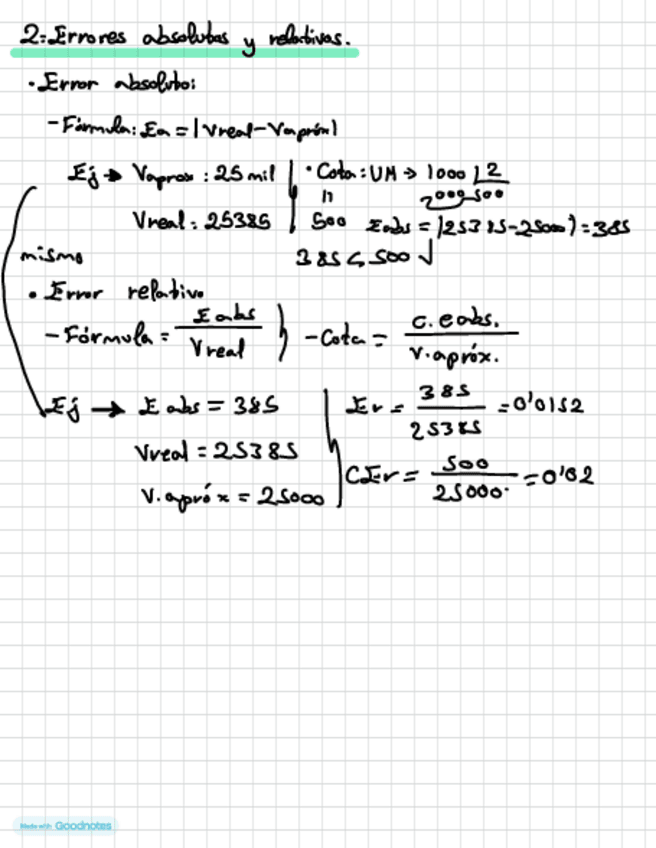 2.Errores absolutos y relativos.
· Error absoluto:
- Fórmula: Ea = |Vreal - Vapróx|
Ej → Vaprox : 25 mil | · Cota : UM → 1000 | 2
" 2000 500
Vreal : 25385 | 500 Eabs = |25385-25000| = 385
mismo 385 ≤ 500 √
· Error relativo
- Fórmula = E abs / Vreal } - Cota = c. e abs. / v. apróx.
Ej → E abs = 385 | Er = 385 / 25385 = 0'0152
Vreal = 25385
V. apróx = 25000 | CEr = 500 / 25000 = 0'02
Made with Goodnotes